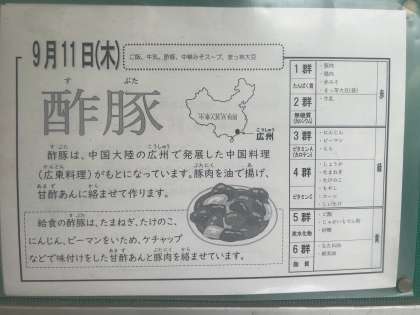 9月11日(木)
ご飯、牛乳、酢豚、中華みそスープ、煎っ粉大豆
す ぶた
酢豚
中華人民共和国
こうしゅう
広州
す ぶた
こうしゅう
酢豚は、中国大陸の広州で発展した中国料理
かんとん
ぶたにく
あ
(広東料理)がもとになっています。豚肉を油で揚げ、
あまず
から
甘酢あんに絡ませて作ります。
給食の酢豚は、たまねぎ、たけのこ、
にんじん、ピーマンをいため、ケチャップ
などで味付けをした甘酢あんと豚肉を絡ませています。
1群
たんぱく質
・豚肉
・鶏肉
・赤みそ
2群
無機質
(カルシウム)
・牛乳
3群
ビタミンA
(カロテン)
・にんじん
・ピーマン
4群
ビタミンC
・しょうが
・たまねぎ
・たけのこ
・もやし
・コーン
・しいたけ
5群
炭水化物
・ご飯
・じゃがいもでん粉
・砂糖
6群
脂質